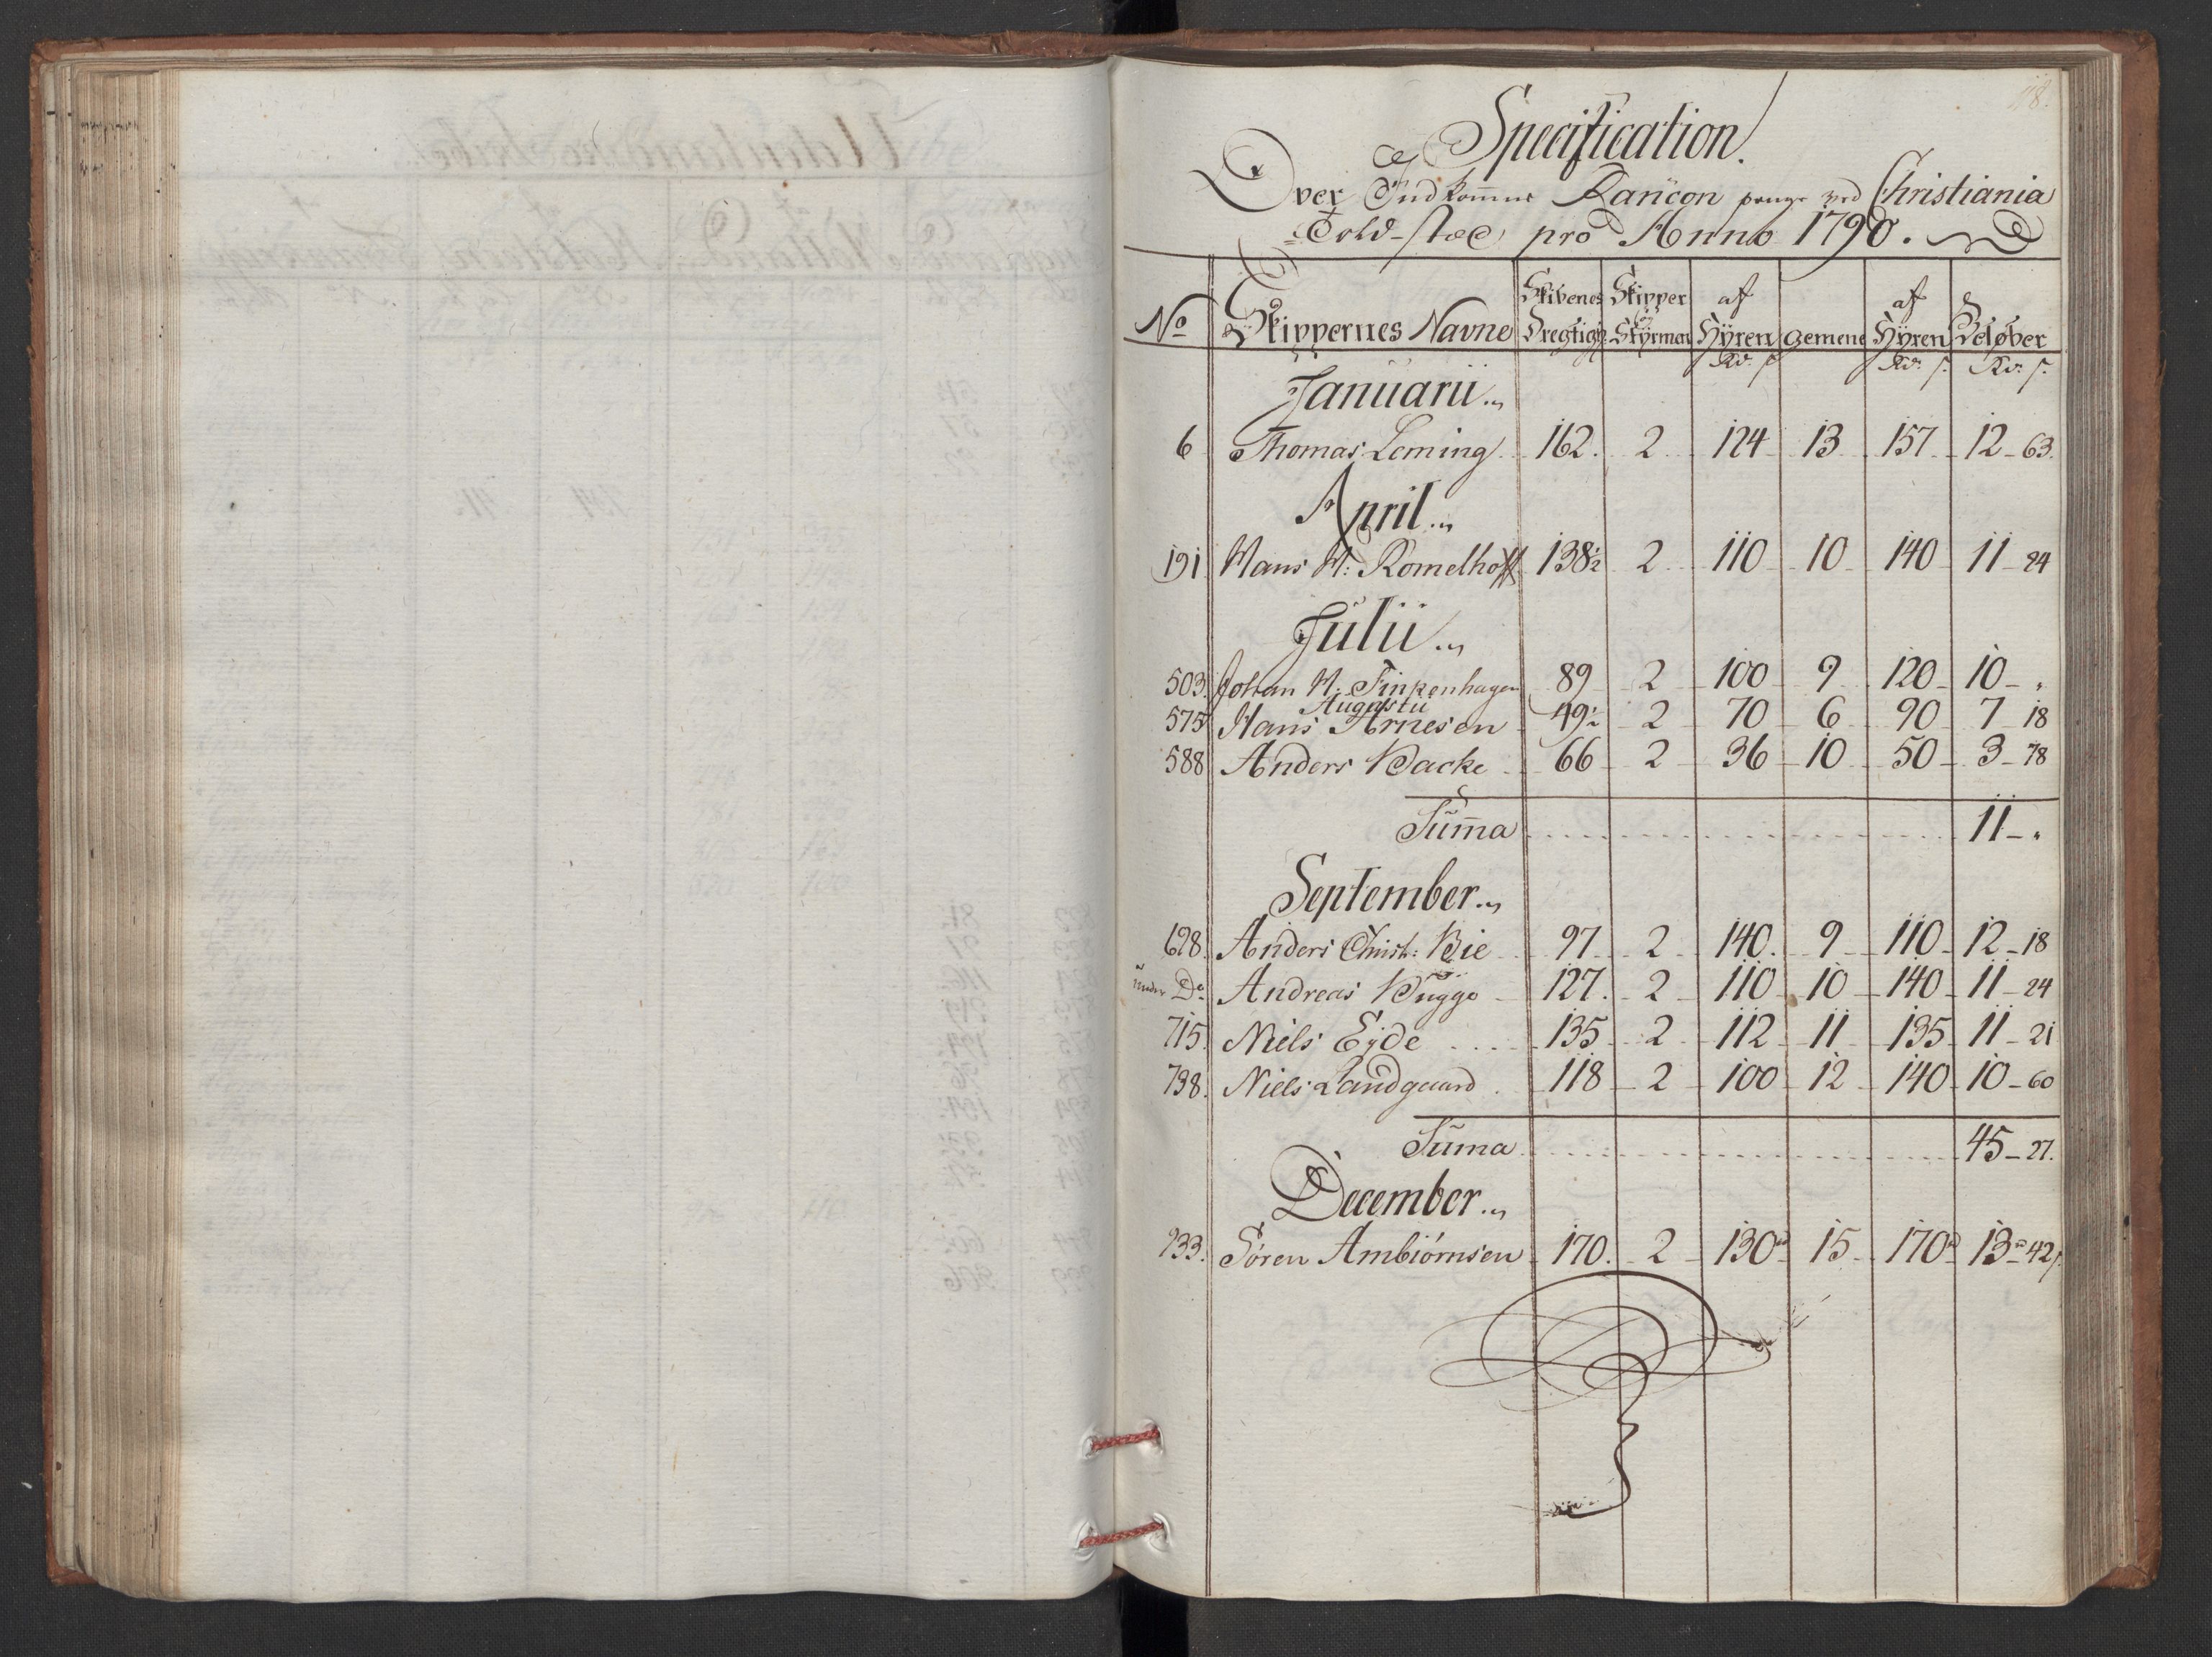 118.
Specification.
Over Indkomne Rancon penge ved Christiania
Told-stæd pro Anno 1790.
No Skippernes Navne Skibenes Dregtigh. Skipper og Styrmand af Hÿren gemene af Hÿren Beløber
Rd. s. Rd. s. Rd. s.
Januarii
6 Thomas Leming 162. 2 124 13 157 12 - 63.
April
191 Hans H: Romelhoff 138½ 2 110 10 140 11 - 24
Julii
503. Johan H. Finkenhagen 89 2 100 9 120 10 - "
Augustii
575 Hans Arnesen 49½ 2 70 6 90 7 18
588 Anders Backe 66 2 36 10 50 3 - 78
Suma 11 - "
September
628. Anders Christ: Bie 97 2 140. 9 110 12 - 18
under Do Andreas Bugge 127. 2 110 10 140 11 - 24
715. Niels Eÿde 135 2 112 11 135 11 - 21
738. Niels Landgaard 118 2 100 12 140 10 - 60
Suma 45 - 27.
December
933. Søren Ambiörnsen 170. 2 130 15 170 13 - 42